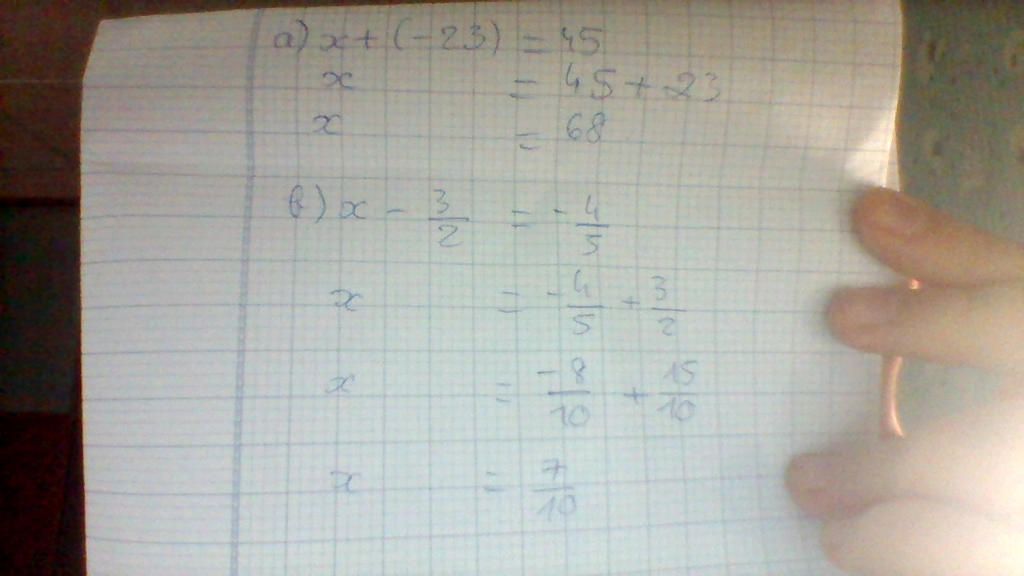 a) x + (-23) = 45
x = 45 + 23
x = 68
b) x - 3/2 = -4/5
x = -4/5 + 3/2
x = -8/10 + 15/10
x = 7/10